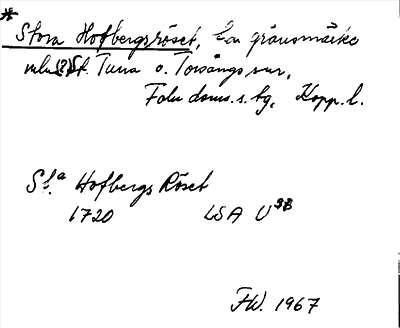 * Stora Hofbergsröset, gränsmärke
mln (?) St. Tuna o. Torsångs snr,
Falu doms. s. tg, Kopp. l.
St.ª Hofbergs Röset
1720 LSA U 3B
FW. 1967